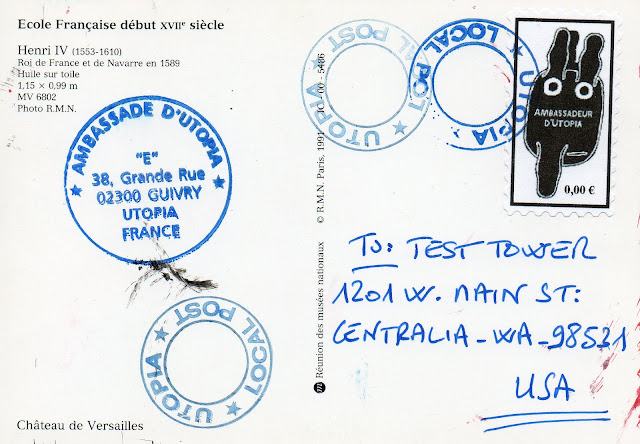 Ecole Française début XVIIe siècle
Henri IV (1553-1610)
Roi de France et de Navarre en 1589
Huile sur toile
1,15 × 0,99 m
MV 6802
Photo R.M.N.
★ AMBASSADE D'UTOPIA ★
"E"
38, Grande Rue
02300 GUIVRY
UTOPIA
FRANCE
LOCAL POST ★ UTOPIA ★
Château de Versailles
Réunion des musées nationaux
© R.M.N. Paris, 1991
5486
LOCAL POST ★ UTOPIA ★
LOCAL POST ★ UTOPIA ★
AMBASSADEUR
D'UTOPIA
0,00 €
TO: TEST TOWER
1201 W. MAIN ST:
CENTRALIA-WA-98531
USA